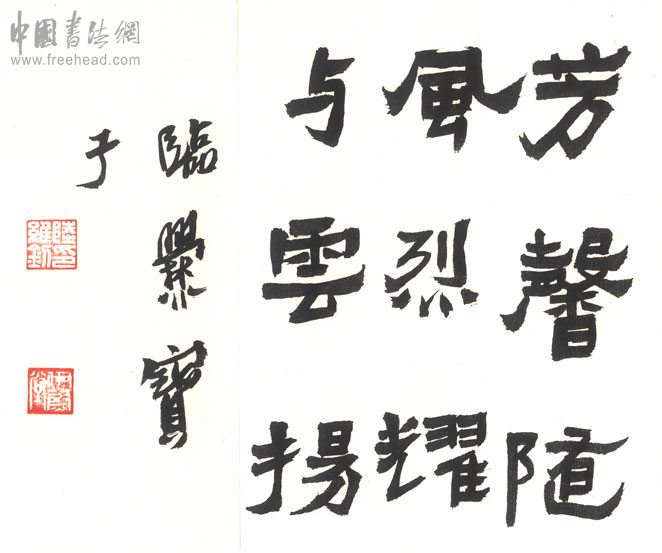 中國书法網
www.freehead.com
芳馨随
風烈耀
与雲揚
臨爨寶
子
陸印維釗